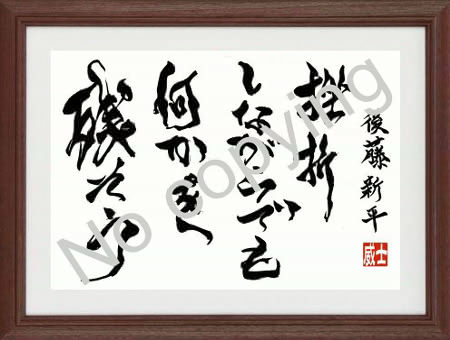 後藤新平
挫折
しながらでも
何か
残
威士
No copying